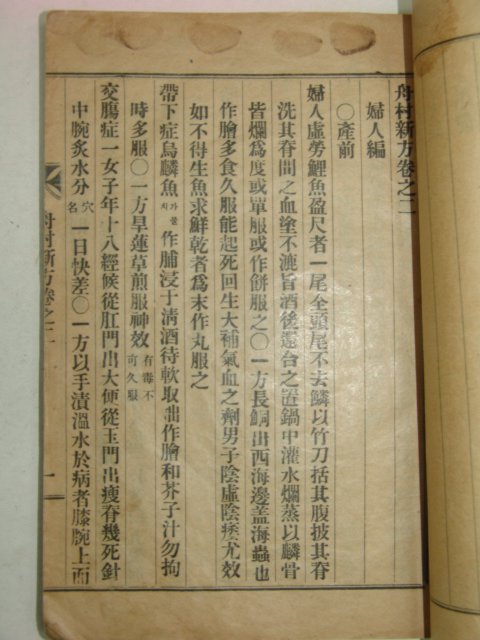 舟村新方卷之二
婦人編
○產前
婦人虛勞鯉魚盈尺者一尾全頭尾不去鱗以竹刀括其腹披其脊
洗其脊間之血塗不漉旨酒後還合之置鍋中灌水爛蒸以鱗骨
皆爛爲度或單服或作餠服之○一方長鮦出西海邊盖海蟲也
作膾多食久服能起死回生大補氣血之劑男子陰虛陰痿尤效
如不得生魚求鮮乾者爲末作丸服之
帶下症烏鱗魚가물치作脯浸于淸酒待軟取出作膾和芥子汁勿拘
時多服○一方旱蓮草煎服神效有毒不可久服
交腸症一女子年十八經候從肛門出大便從玉門出瘦脊幾死針
中腕炙水分穴名一日快差○一方以手漬溫水於病者膝腕上面
舟村新方卷之二
一